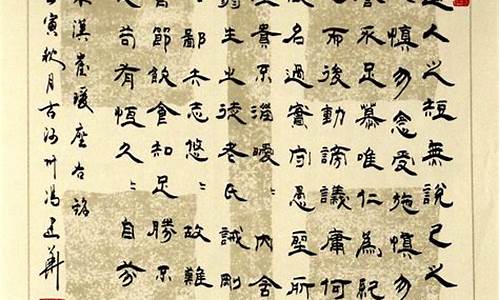 道人之短無說己之
慎勿念受施慎勿
不足慕唯仁為紀
而後動謗議庸何
名過實守愚聖所
貴不淄曖〻內含
弱生之徒老氏誡剛
鄙夫志悠〻故難
節飲食知足勝不
之苟有恆久〻自芬
漢崔瑗座右銘
寅秋月古汾州馮